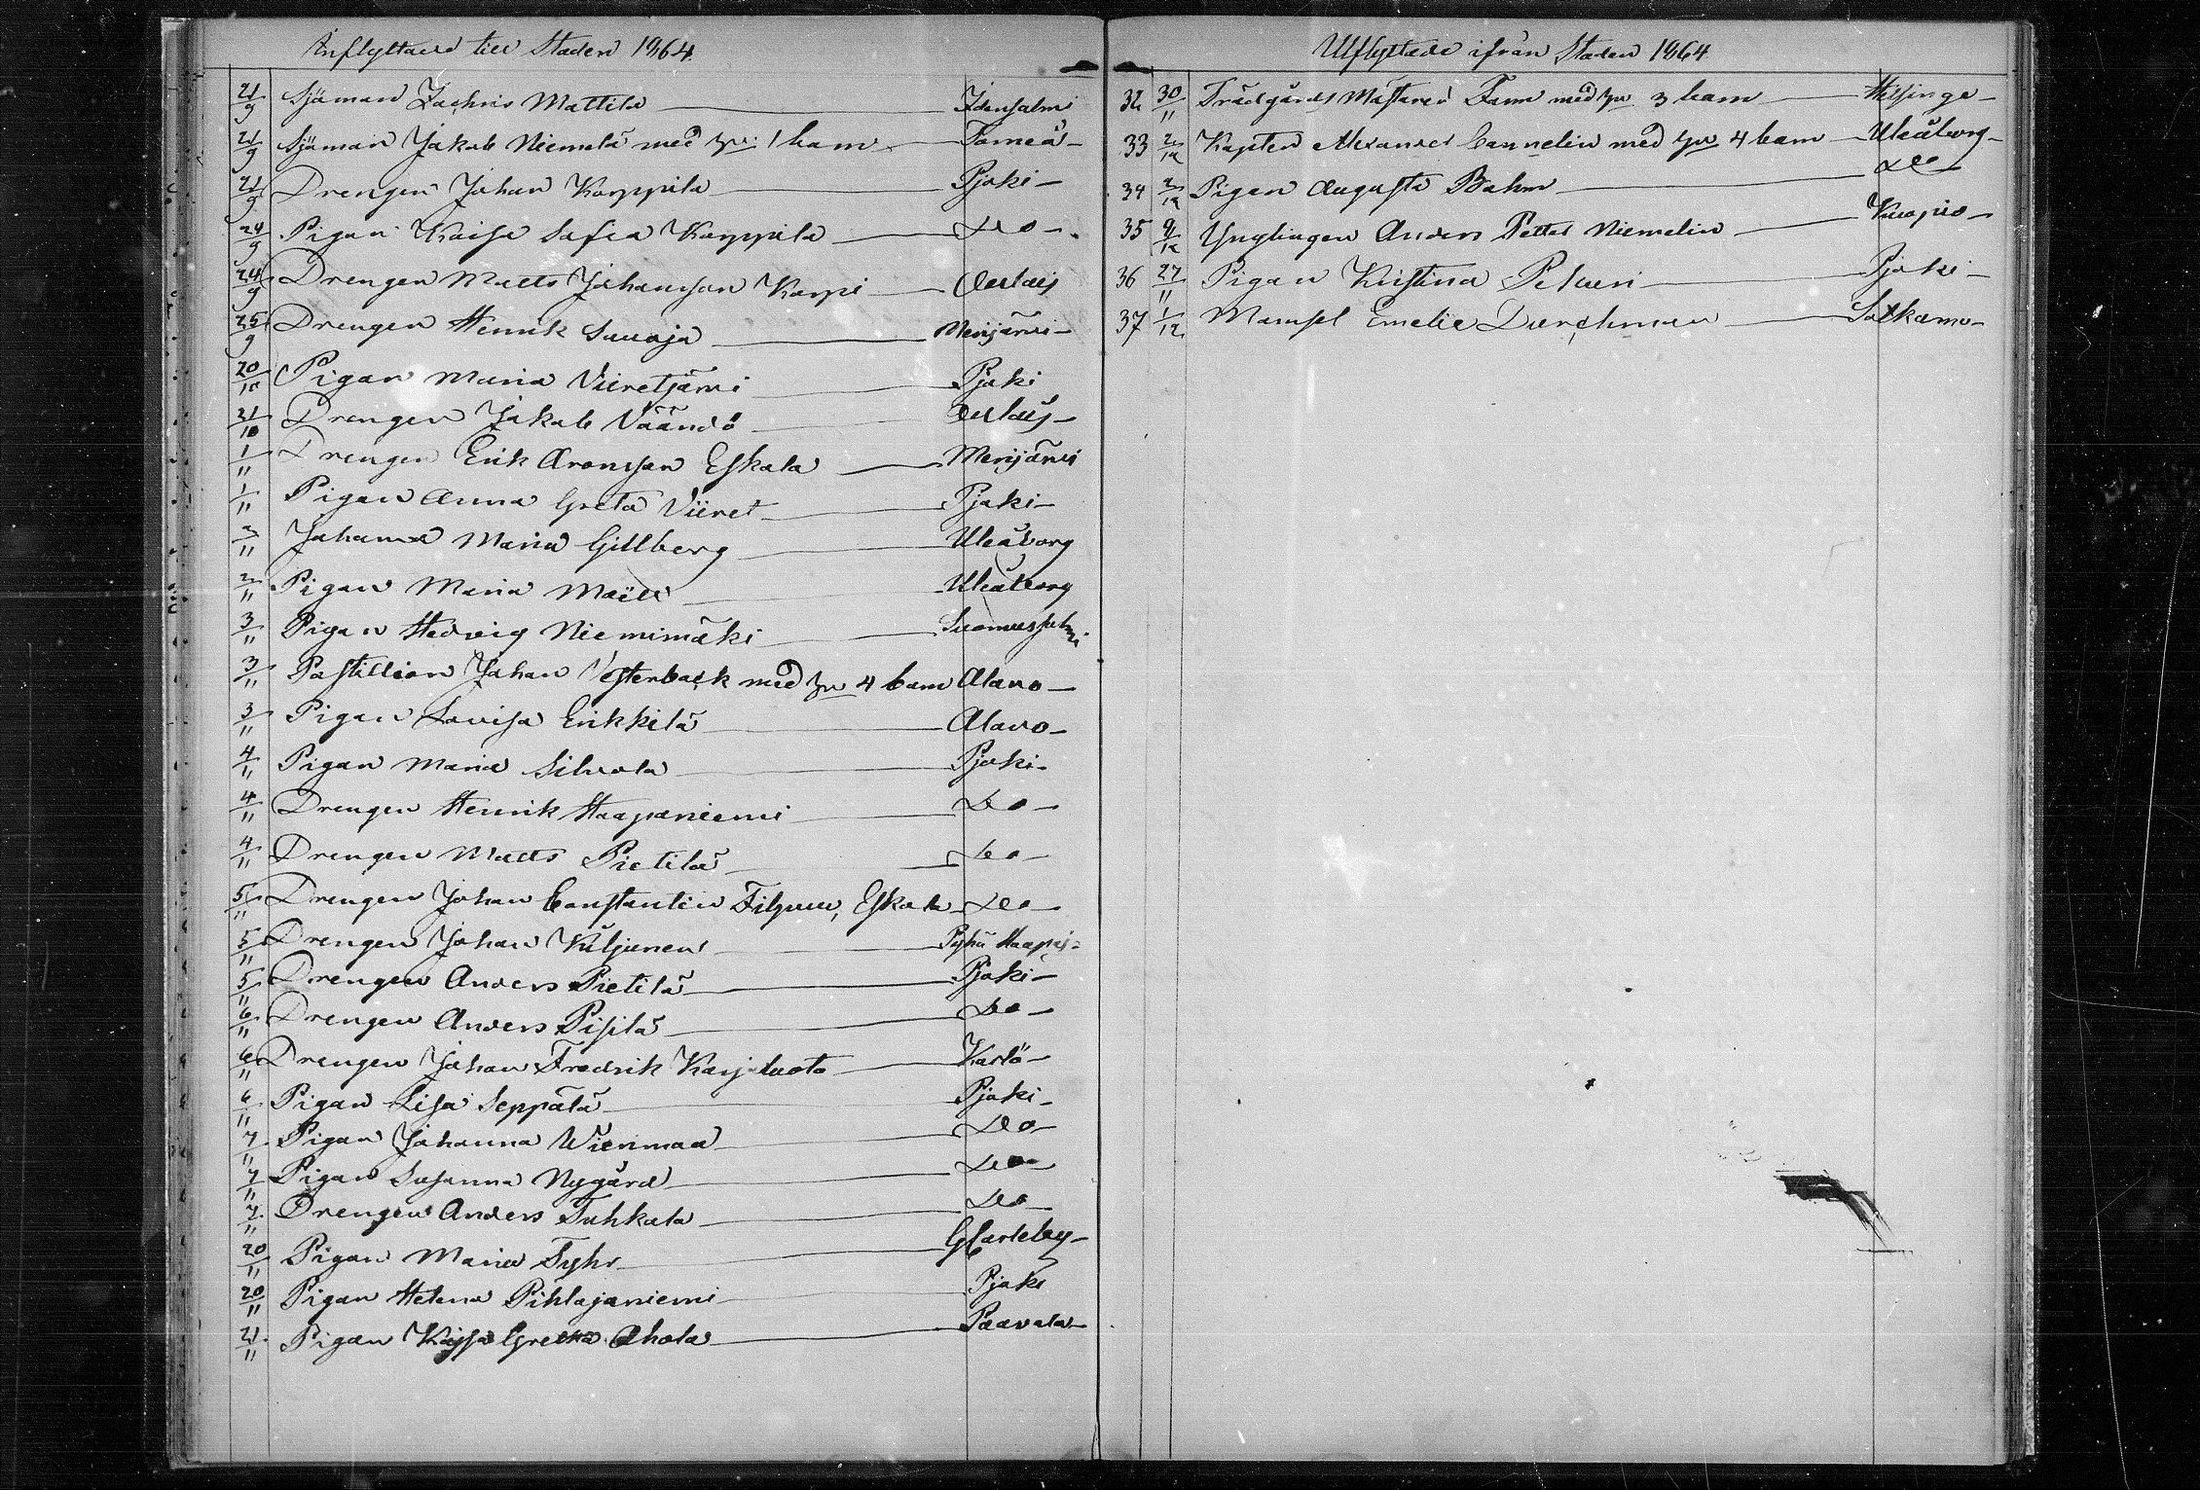 Inflyttade till Staden 1864.
21/9 Sjöman Zachris Mattila Idensalmi
21/9 Sjöman Jakob Niemelä med 1 barn Torneå
21/9 Drengen Johan Karppila Pjoki
24/9 Pigan Kaisa Sofia Karppila Do
24/9 Drengen Matts Johansson Karpi
25/9 Drengen Henrik Suvoja Merijärvi
20/10 Pigan Maria Viiretjärvi Pjoki
21/10 Drengen Jakob Väändö
1/11 Drengen Erik Aronsson Eskola Merijärvi
1/11 Pigan Anna Greta Viiret Pjoki
2/11 Johanna Maria Gillberg Uleåborg
2/11 Pigan Maria Uleåborg
3/11 Pigan Hedvig Niemimäki Suomussalmi
3/11 Postillion Johan Vesterback med hu 4 barn Alavo
3/11 Pigan Lovisa Erikkilä Alavo
4/11 Pigan Maria Silvola Pjoki
4/11 Drengen Henrik Haapaniemi Do
4/11 Drengen Matts Pietilä Do
5/11 Drengen Johan Constantin Eskola Do
5/11 Drengen Johan Kiljunen Pyhä
5/11 Drengen Anders Pietilä Pjoki
6/11 Drengen Anders Pisilä Do
6/11 Drengen Johan Fredrik Karjaluoto Karlö
6/11 Pigan Lisa Seppälä Pjoki
7/11 Pigan Johanna Wirinmaa Do
7/11 Pigan Susanna Nygård Do
7/11 Drengen Anders Tuhkala Do
20/11 Pigan Maria Fyhr GCarleby
20/11 Pigan Helena Pihlajaniemi Pjoki
21/11 Pigan Kajsa Greta Ahola Paavola
Utflyttade ifrån Staden 1864.
32 30/11 Trädgårds Mästaren Fam med hu 3 barn Helsinge
33 2/12 Kapten Alexander Cannelin med hu 4 barn Uleåborg
34 2/12 Pigan Augusta Bohm Do
35 9/12 Ynglingen Anders Petter Niemelin Kuopio
36 27/11 Pigan Kristina Pekuri Pjoki
37 1/12 Mamsel Emelie Durchman Sotkamo